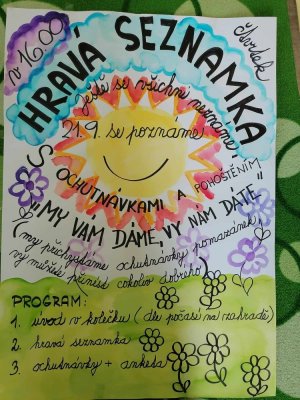 v 16.00
čtvrtek
HRAVÁ SEZNAMKA
Ještě se všichni neznáme!
21.9. se poznáme
S OCHUTNÁVKAMI A POHOŠTĚNÍM
"MY VÁM DÁME, VY NÁM DÁTE"
(my přichystáme ochutnávky pomazánek,
vy můžete přinést cokoliv dobrého)
PROGRAM:
1. úvod v kolečku (dle počasí na zahradě)
2. hravá seznamka
3. ochutnávky + anketa